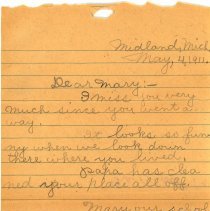 Midland, Mich
May, 4, 1911.
Dear Mary:-
I miss you very
much since you went a
way.
It looks so fun
ny when we look down
there where you lived.
papa has clea
ned your place all off.
Mary our